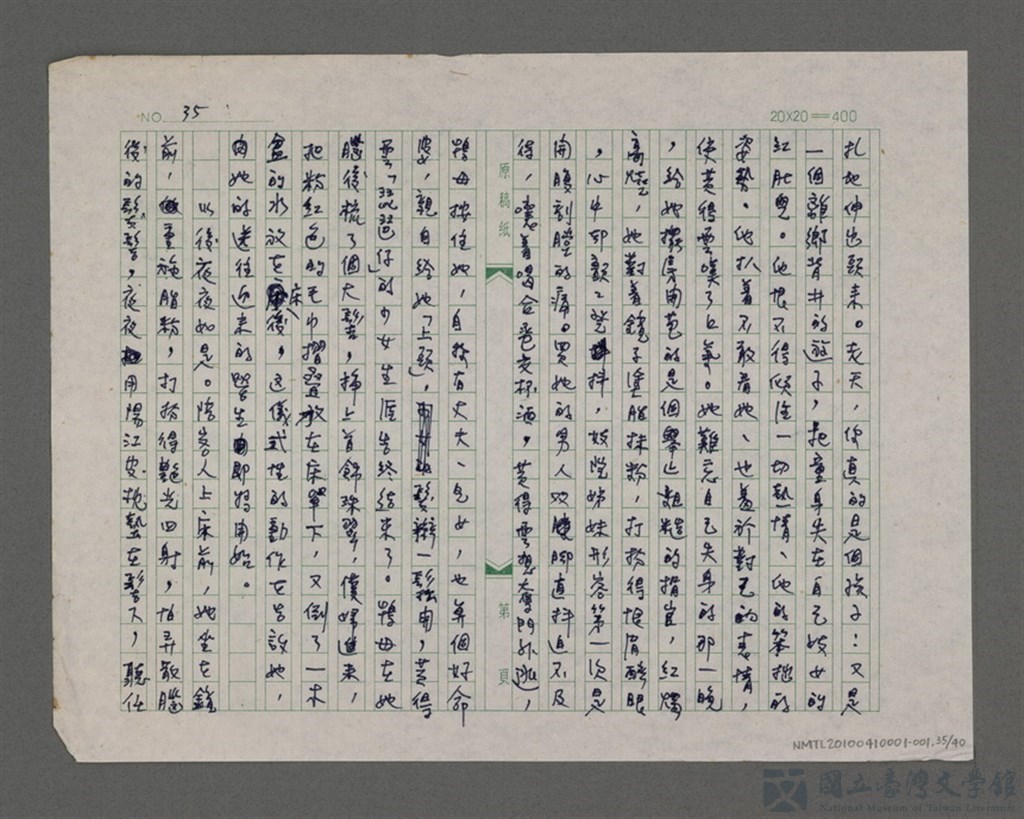 NO. 35
20X20=400
扎地伸出頭來。老天,你真的是個孩子:又是
一個離鄉背井的遊子,把童身失在自己妓女的
紅肚兜。他恨不得傾注一切熱情、他的笨拙的
姿勢。他趴着不敢看她、也羞於對己的表情,
使黃得雲嘆了口氣。她難忘自己失身的那一晚
,給她擺房開苞的是個舉止粗糙的捐官,紅燭
高燒,她對着鏡子塗脂抹粉,打扮得恨眉醉眼
,心中卻顫顫發抖,妓院姊妹形容第一次是
開腹割膛的痛。買她的男人雙腳直抖迫不及
得,嚷着喝合巹交杯酒,黃得雲想奪門外逃,
原稿紙
第 頁
鴇母按住她,自扮有丈夫、兒女,也算個好命
婆,親自給她「上頭」,髮辮一鬆開,黃得
雲「琵琶仔」的少女生涯告終結束了。鴇母在她
腦後梳了個大髻,插上首飾珠翠,僕婦進來,
把粉紅色的毛巾摺疊放在床單下,又倒了一木
盆的水放在床後,這儀式性的動作在告訴她,
由她的送往迎來的營生即將開始。
以後夜夜如是。陪客人上床前,她坐在鏡
前,重施脂粉,打扮得艷光四射,怕弄散腦
後的髮髻,夜夜用陽江皮枕墊在髻下,聽任
NMTL20100410001-001.35/40
國立臺灣文學館
National Museum of Taiwan Literature